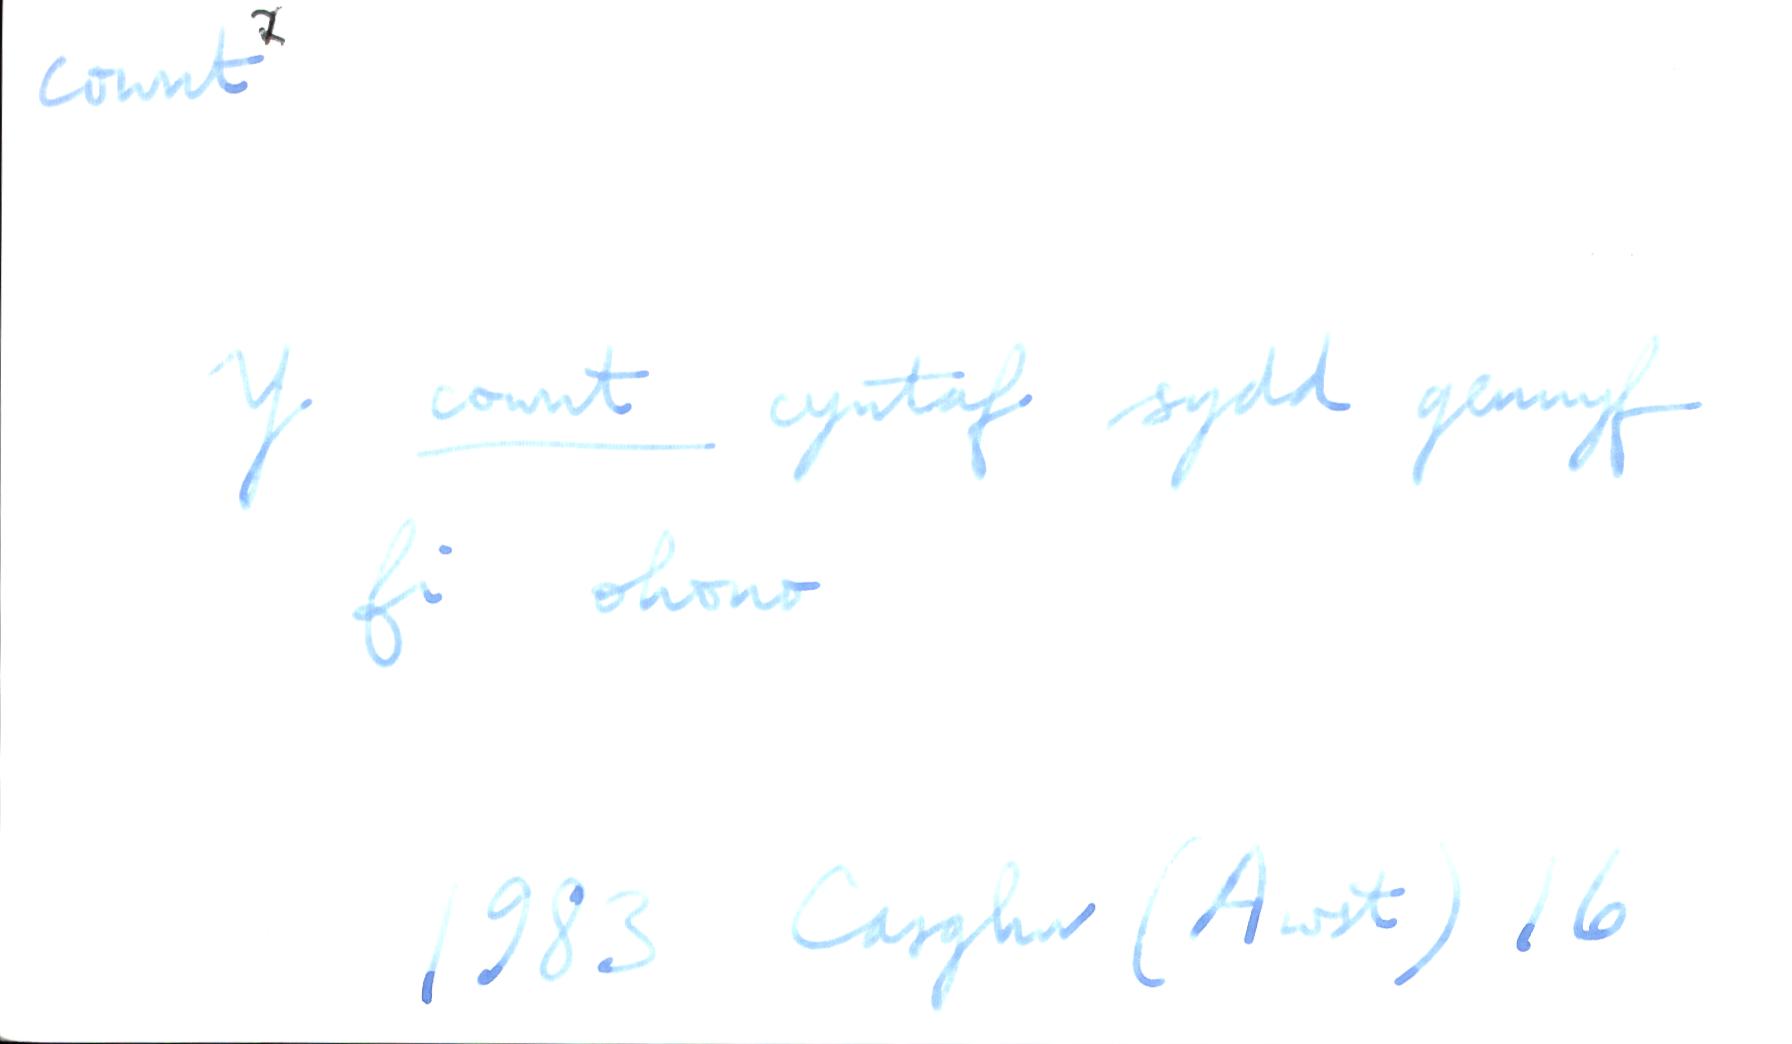 cownt²
Y cownt cyntaf sydd gennyf
fi ohono
1983 Casglwr (Awst) 16